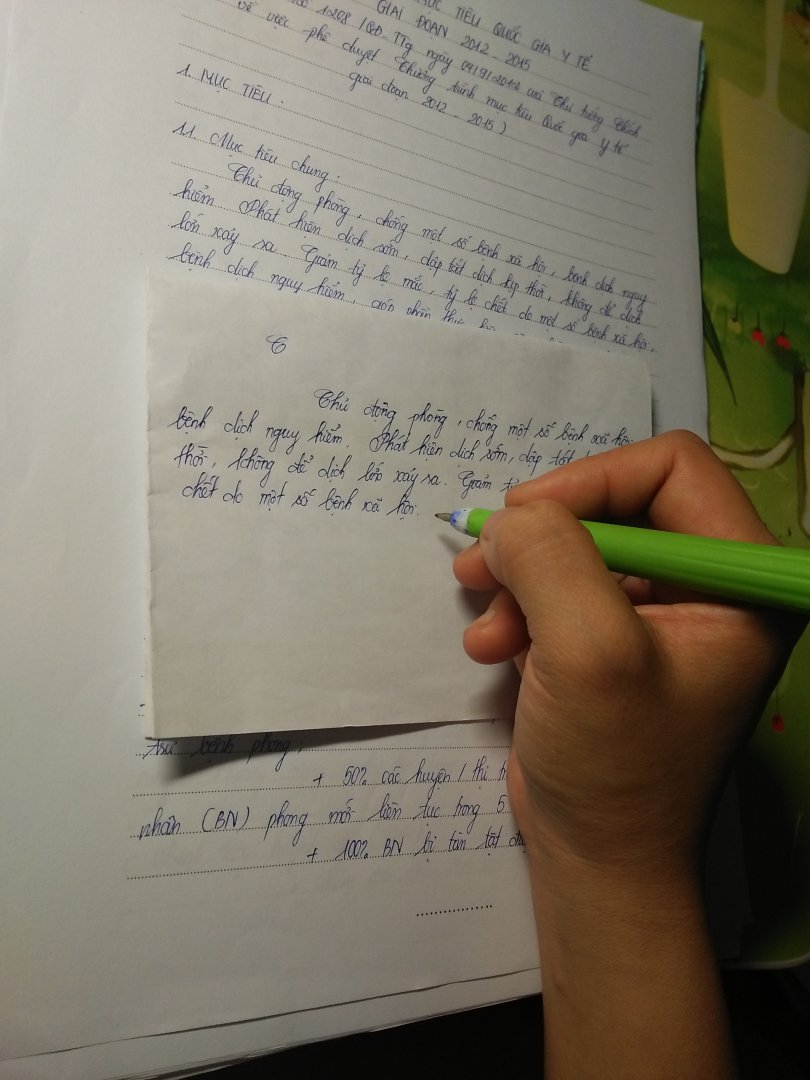 MỤC TIÊU QUỐC GIA Y TẾ
GIAI ĐOẠN 2012 - 2015
số 1208 /QĐ-TTg ngày 04/9/2012 của Thủ tướng Chính
về việc phê duyệt Chương trình mục tiêu Quốc gia y tế
giai đoạn 2012 - 2015)
1. MỤC TIÊU :
1.1. Mục tiêu chung :
Chủ động phòng, chống một số bệnh xã hội, bệnh dịch nguy
hiểm. Phát hiện dịch sớm, dập tắt dịch kịp thời, không để dịch
lớn xảy sa. Giảm tỷ lệ mắc, tỷ lệ chết do một số bệnh xã hội,
bệnh dịch nguy hiểm, góp phần thực
C
Chủ động phòng, chống một số bệnh xã hội,
bệnh dịch nguy hiểm. Phát hiện dịch sớm, dập tắt
thời, không để dịch lớn xảy sa. Giảm
chết do một số bệnh xã hội.
bệnh phong.
+ 50% các huyện / thị
nhân (BN) phong mới liên tục trong 5
+ 100% BN bị tàn tật